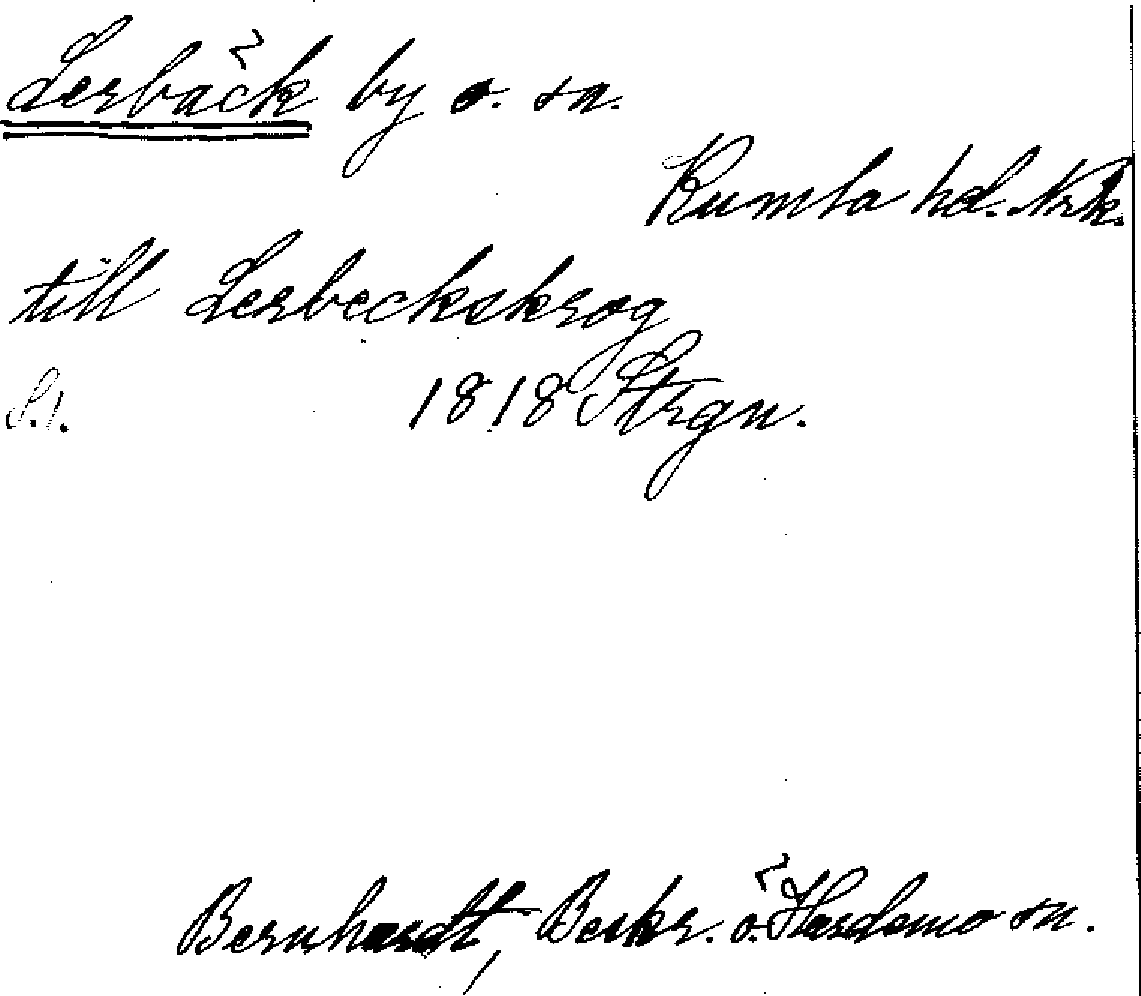 Lerbäck by o. sn.
Kumla hd. Nrk.
till Lerbeckskrog
S. 1. 1818 Strgn.
Bernhardt, Beskr. ö. Hardemo sn.